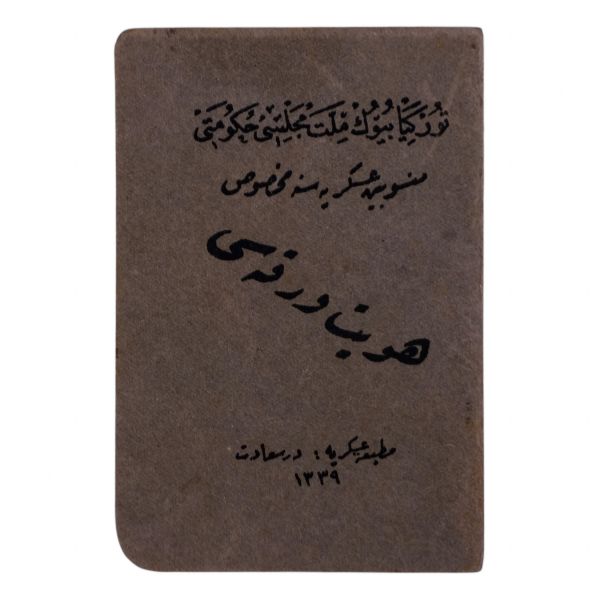 تورکیا بیوك ملت مجلسی حکومتی
منسوبین عسکریه‌سنه مخصوص
هویت ورقه‌سی
مطبعهٔ عسکریه : درسعادت
١٣٣٩